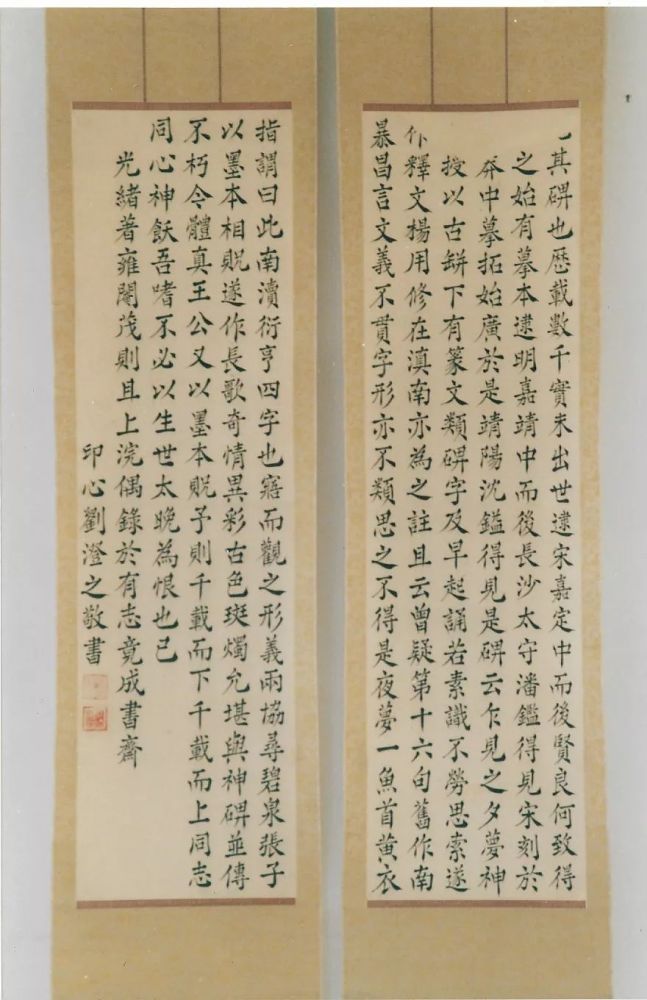 其碑也歷載數千實未出世逮宋嘉定中而後賢良何致得
之始有摹本逮明嘉靖中而後長沙太守潘鎰得見宋刻於
莽中摹拓始廣於是靖陽沈鎰得見是碑云乍見之夕夢神
授以古缾下有篆文類碑字及早起誦若素識不勞思索遂
作釋文楊用修在滇南亦為之註且云曾疑第十六句舊作南
暴昌言文義不貫字形亦不類思之不得是夜夢一魚首黃衣
指謂曰此南瀆衍亨四字也寤而觀之形義兩協尋碧泉張子
以墨本相貺遂作長歌奇情異彩古色斑燭允堪與神碑並傳
不朽今體真王公又以墨本貺予則千載而下千載而上同志
同心神飫吾嗜不必以生世太晚為恨也已
光緒著雍閹茂則且上浣偶錄於有志竟成書齋
印心劉澄之敬書